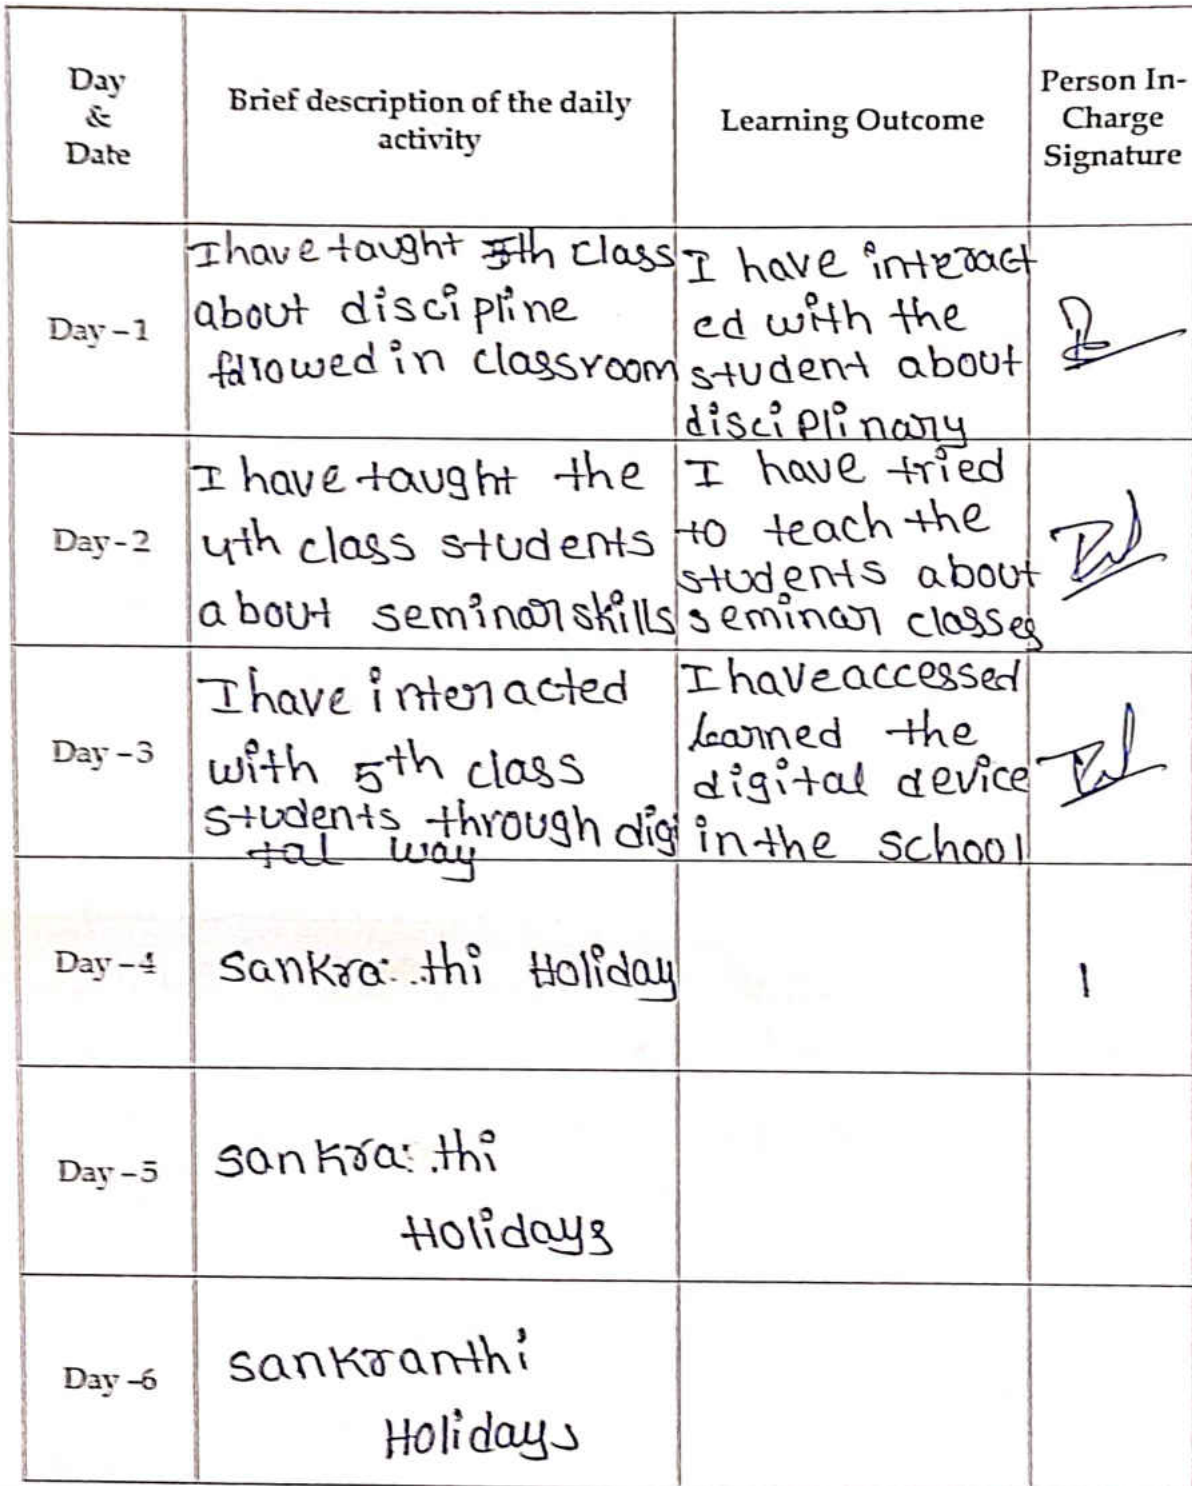 Day
&
Date
Brief description of the daily
activity
Learning Outcome
Person In-
Charge
Signature
Day - 1
I have taught 5th class
about discipline
followed in classroom
I have interact
ed with the
student about
disciplinary
Day - 2
I have taught the
4th class students
about seminar skills
I have tried
to teach the
students about
seminar classes
Day - 3
I have interacted
with 5th class
students through digi
tal way
I have accessed
learned the
digital device
in the school
Day - 4
Sankra: thi Holiday
Day - 5
Sankra: thi
Holidays
Day - 6
Sankranthi
Holidays